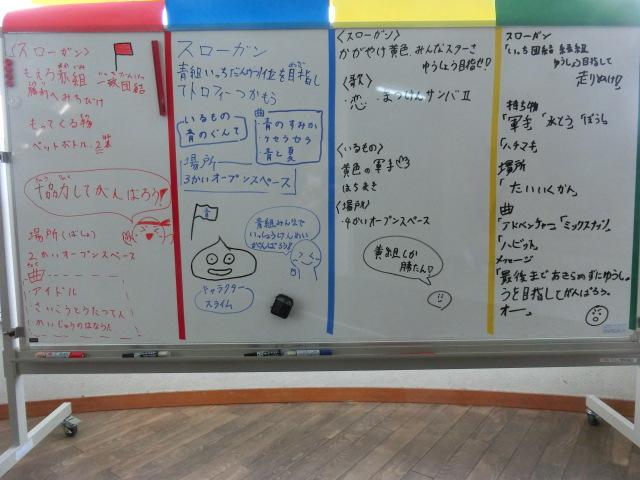 〈スローガン〉
もえろ赤組 一致団結
勝利へみちびけ
もってくる物
ペットボトル、2本
協力してがんばろう!
場所(ばしょ)
2かいオープンスペース
曲
アイドル
さいこうとうたつてん
スローガン
青組いっちだんけつ1位を目指し
てトロフィーつかもう
いるもの
青のぐんて
曲
・青のすみか
・ケセラセラ
・青と夏
場所
3かいオープンスペース
青
青組みんなで
いっしょうけんめい
がんばろう!
キャラクター
スライム
〈スローガン〉
かがやけ黄色、みんなスターさ
ゆうしょう目指せ!
〈歌〉
・恋 ・まつけんサンバⅡ
〈いるもの〉
黄色の軍手
はちまき
〈場所〉
・4かいオープンスペース
黄組しか
勝たん♡
スローガン
「いっち団結 緑組
ゆうしょう目指して
走りぬけ!」
持ち物
「軍手」「水とう」「ぼうし」
「ハチマキ」
場所
「たいいくかん」
曲
「アドベンチャー」「ミックスナッツ」
メッセージ
「最後まであきらめずにゆうしょ
うを目指してがんばろう。
オー」